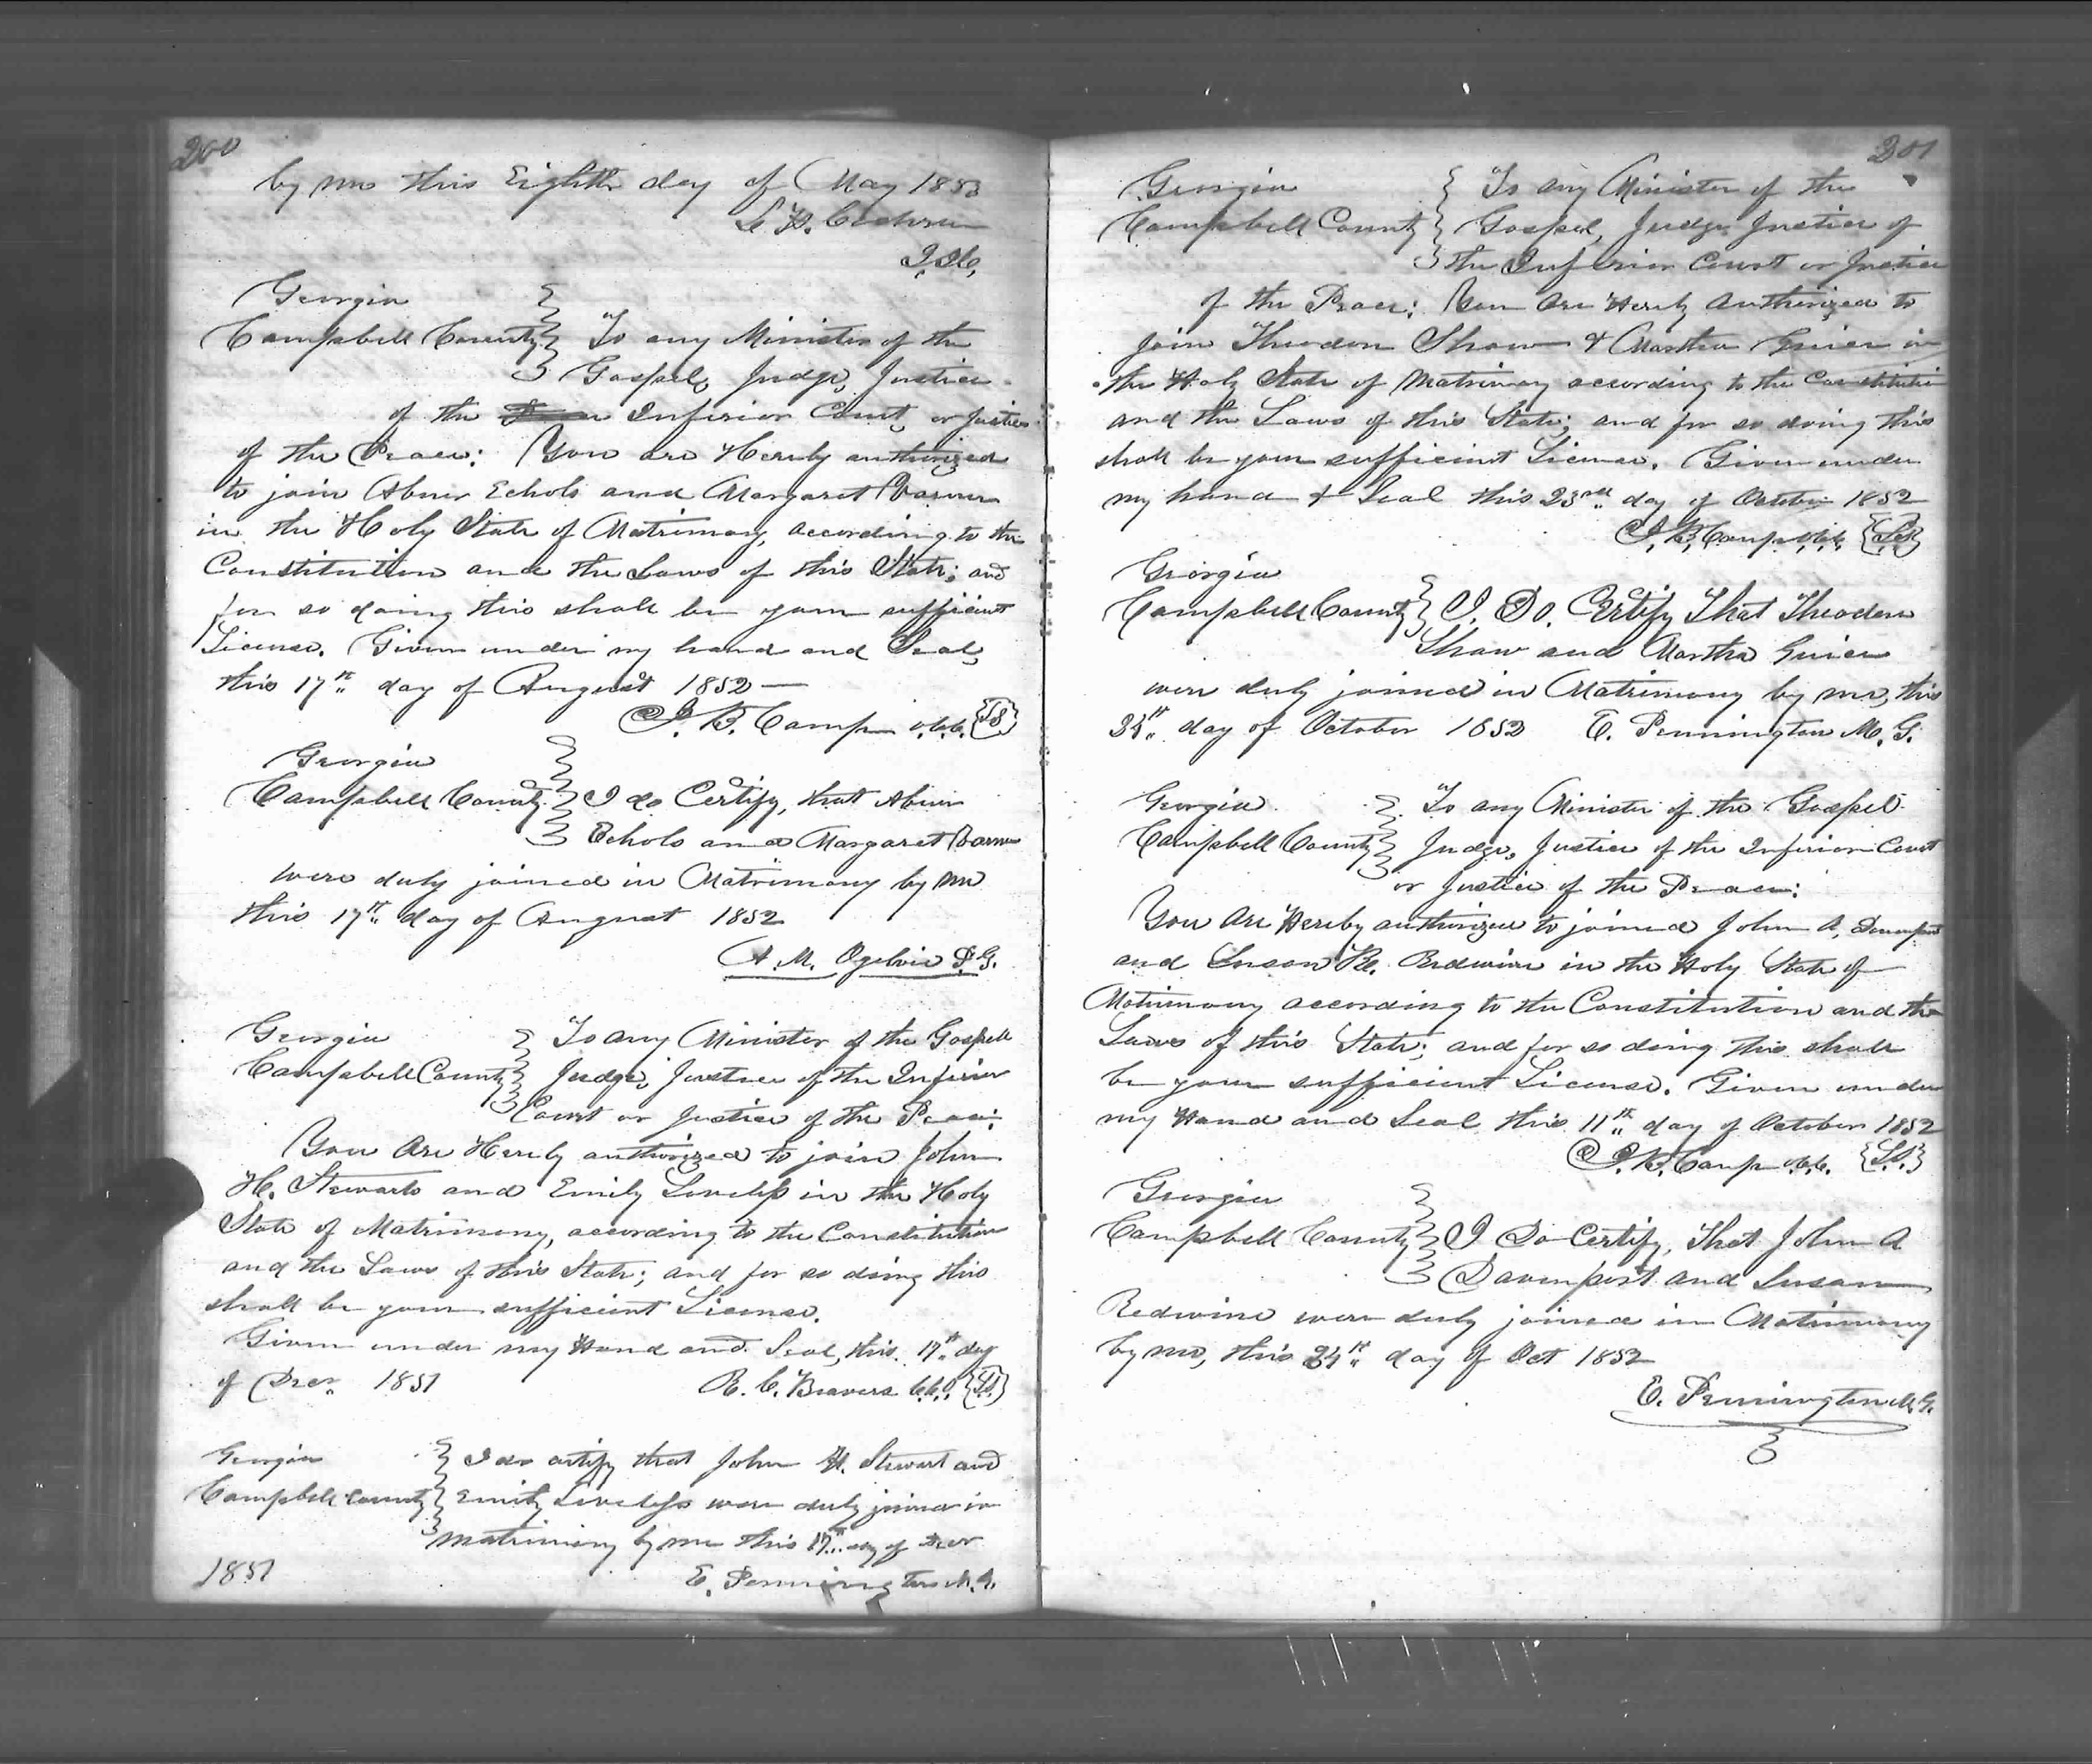 200
by me this Eighth day of May 1853
L H. Cochran
J.I.C.
Georgia
Campbell County To any Minister of the
Gospel, Judge, Justice
of the Inferior Court, or Justice
of the Peace: You are Hereby authorized
to join Abner Echols and Margaret
in the Holy State of Matrimony, according to the
Constitution and the Laws of this State; and
for so doing this shall be your sufficient
License. Given under my hand and Seal,
this 17th day of August 1852
J. B. Camp c.c.o. {LS}
Georgia
Campbell County I do Certify, that Abner
Echols and Margaret
were duly joined in Matrimony by me
this 17th day of August 1852
A. M. Ogelvie
Georgia To any Minister of the Gospell
Campbell County Judge, Justice of the Inferior
Court or Justice of the Peace:
You Are Hereby authorized to join John
H. Stewart and Emily Loveless in the Holy
State of Matrimony, according to the Constitution
and the Laws of this State; and for so doing this
shall be your sufficient License.
Given under my Hand and Seal, this 17th day
of Decr 1851 R. C. Beavers c.c.o. {LS}
Georgia I do certify that John H. Stewart and
Campbell County Emily Loveless were duly joined in
matrimony by me this 17th day of Decr
1851 E. Pennington M.G.
201
Georgia To any Minister of the
Campbell County Gospel, Judge Justice of
the Inferior Court or Justice
of the Peace: You Are Hereby Authorized to
join Theoden Shaw & Martha Grier in
the Holy State of Matrimony according to the Constitution
and the Laws of this State; and for so doing this
shall be your sufficient License. Given under
my hand & Seal this 23rd day of October 1852
J. B. Camp c.c.o. {LS}
Georgia
Campbell County I. Do. Certify That Theoden
Shaw and Martha Grier
were duly joined in Matrimony by me, this
24th day of October 1852 E. Pennington M. G.
Georgia To any Minister of the Gospel
Campbell County Judge, Justice of the Inferior Court
or Justice of the Peace:
You Are Hereby authorized to joined John A. Davenport
and Susan Redwine in the Holy State of
Matrimony according to the Constitution and the
Laws of this State; and for so doing this shall
be your sufficient License. Given under
my Hand and Seal this 11th day of October 1852
J. B. Camp c.c.o. {LS}
Georgia
Campbell County I Do Certify, That John A
Davenport and Susan
Redwine were duly joined in Matrimony
by me, this 24th day of Oct 1852
E. Pennington M.G.